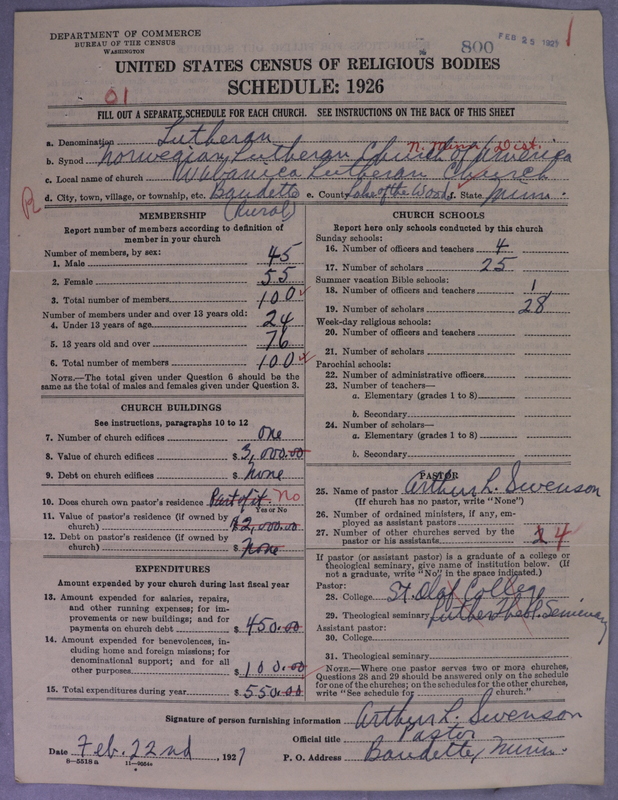 DEPARTMENT OF COMMERCE
BUREAU OF THE CENSUS
WASHINGTON
800 FEB 25 1927 1
UNITED STATES CENSUS OF RELIGIOUS BODIES
SCHEDULE: 1926
01
FILL OUT A SEPARATE SCHEDULE FOR EACH CHURCH. SEE INSTRUCTIONS ON THE BACK OF THIS SHEET
a. Denomination Lutheran
N. Minn. Dist.
b. Synod Norwegian Lutheran Church of America
c. Local name of church Wabanica Lutheran Church
d. City, town, village, or township, etc. Baudette e. County Lake of the Woods f. State Minn.
(Rural)
R
MEMBERSHIP
Report number of members according to definition of
member in your church
Number of members, by sex:
1. Male 45
2. Female 55
3. Total number of members 100
Number of members under and over 13 years old:
4. Under 13 years of age 24
5. 13 years old and over 76
6. Total number of members 100
NOTE.—The total given under Question 6 should be the
same as the total of males and females given under Question 3.
CHURCH BUILDINGS
See instructions, paragraphs 10 to 12
7. Number of church edifices One
8. Value of church edifices $ 3,000.00
9. Debt on church edifices $ None
10. Does church own pastor's residence Part of it. No
Yes or No
11. Value of pastor's residence (if owned by
church) $ $2,000.00
12. Debt on pastor's residence (if owned by
church) $ None
EXPENDITURES
Amount expended by your church during last fiscal year
13. Amount expended for salaries, repairs,
and other running expenses; for im-
provements or new buildings; and for
payments on church debt $ 450.00
14. Amount expended for benevolences, in-
cluding home and foreign missions; for
denominational support; and for all
other purposes $ 100.00
15. Total expenditures during year $ 550.00
CHURCH SCHOOLS
Report here only schools conducted by this church
Sunday schools:
16. Number of officers and teachers 4
17. Number of scholars 25
Summer vacation Bible schools:
18. Number of officers and teachers 1
19. Number of scholars 28
Week-day religious schools:
20. Number of officers and teachers
21. Number of scholars
Parochial schools:
22. Number of administrative officers
23. Number of teachers—
a. Elementary (grades 1 to 8)
b. Secondary
24. Number of scholars—
a. Elementary (grades 1 to 8)
b. Secondary
PASTOR
25. Name of pastor Arthur L. Swenson
(If church has no pastor, write "None")
26. Number of ordained ministers, if any, em-
ployed as assistant pastors
27. Number of other churches served by the
pastor or his assistants 4
If pastor (or assistant pastor) is a graduate of a college or
theological seminary, give name of institution below. (If
not a graduate, write "No" in the space indicated.)
Pastor:
28. College St. Olaf College
29. Theological seminary Luther Theol. Seminary
Assistant pastor:
30. College
31. Theological seminary
NOTE.—Where one pastor serves two or more churches,
Questions 28 and 29 should be answered only on the schedule
for one of the churches; on the schedules for the other churches,
write "See schedule for church."
Signature of person furnishing information Arthur L. Swenson
Official title Pastor
Date Feb. 22nd, 1927 P. O. Address Baudette, Minn.
8—5518a 11—9054